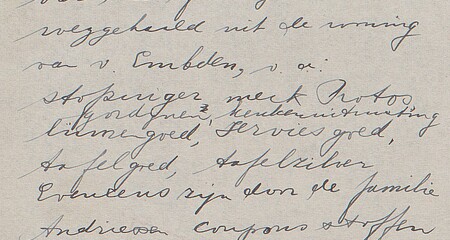 weggehaald uit de woning
van v. Embden, v. o:
stofzuiger merk Protos
gordijnen, keukenuitrusting
linnengoed, serviesgoed,
tafelgoed, tafelzilver
Eveneens zijn door de familie
Andriessen coupons stoffen